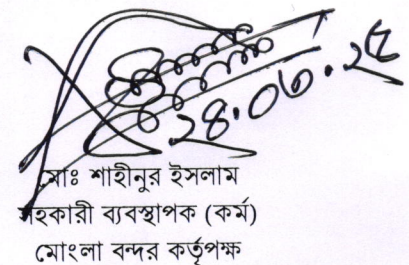 মোঃ শাহীনুর ইসলাম
সহকারী ব্যবস্থাপক (কর্ম)
মোংলা বন্দর কর্তৃপক্ষ